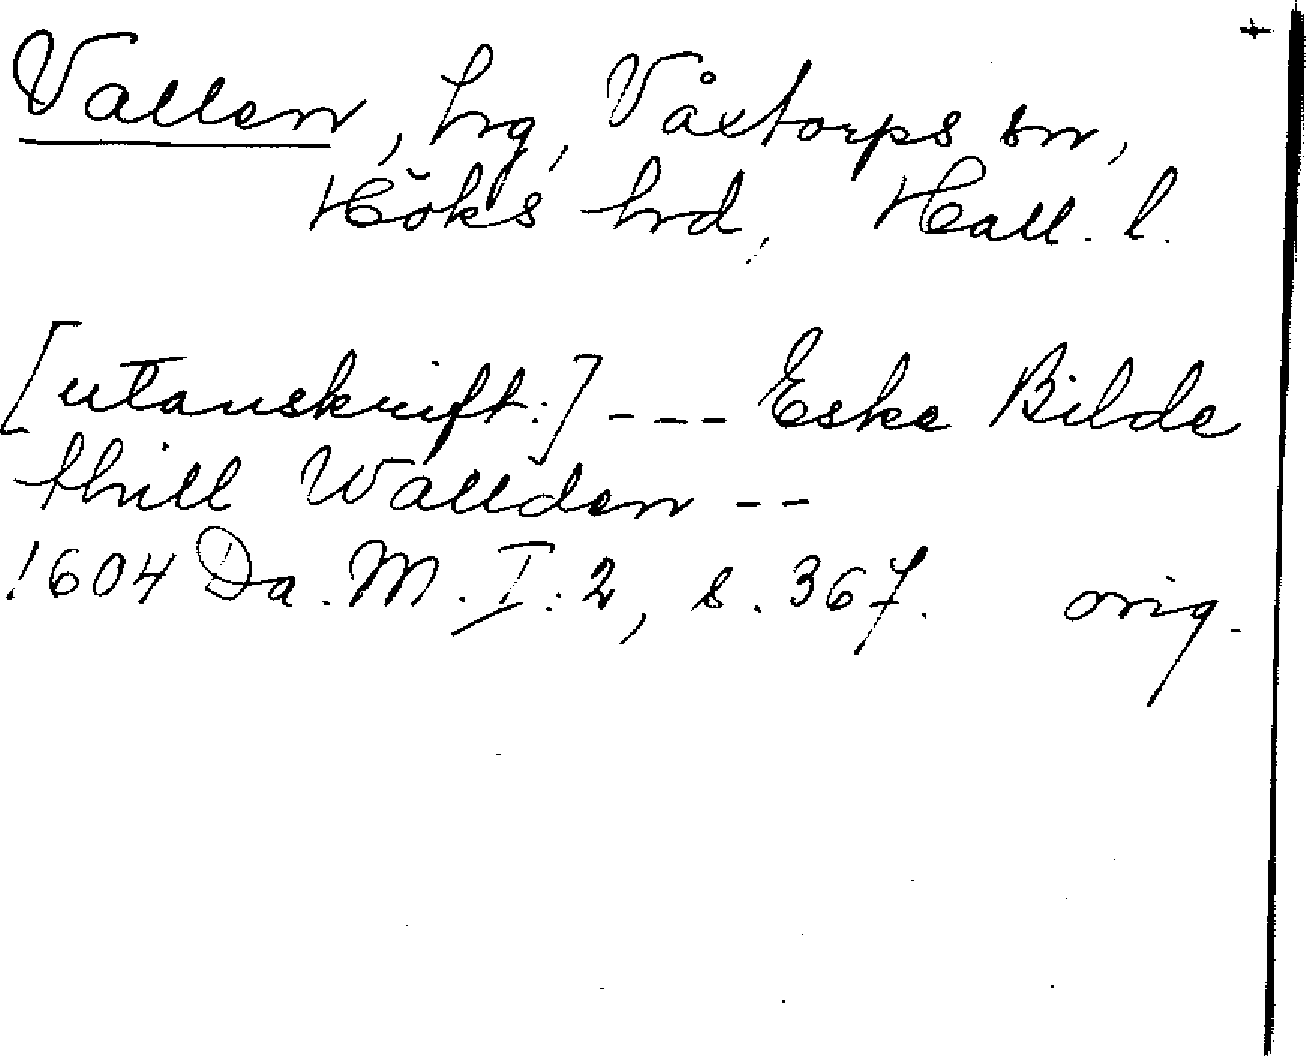 Vallen, hg, Våxtorps sn,
Höks hrd, Hall. l.
[utanskrift:] --- Eske Bilde
thill Wallden --
1604 Da. M. I:2, s. 367. orig.